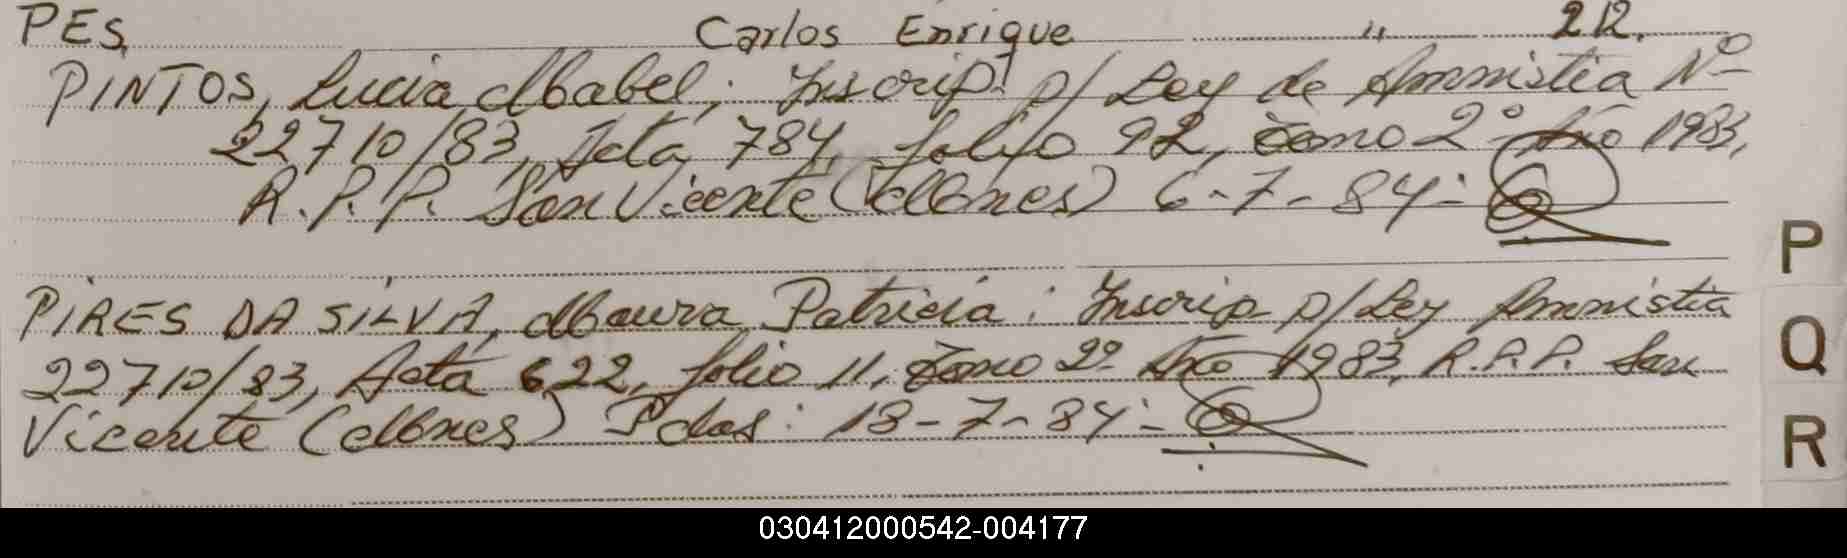 PES, Carlos Enrique " 212.
PINTOS, Lucia Mabel; Inscrip. p/ Ley de Amnistia Nº
22710/83, Acta 784, folio 92, tomo 2º Año 1983,
R.P.P. San Vicente (Mnes) 6-7-84:
PIRES DA SILVA, Maura Patricia: Inscrip p/ Ley Amnistia
22710/83, Acta 622, folio 11, tomo 2º Año 1983, R.P.P. San
Vicente (Mnes) Pdas: 18-7-84:
P
Q
R
030412000542-004177